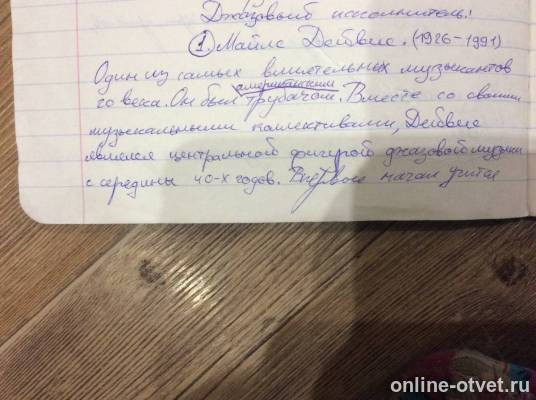 Джазовый исполнитель:
1 Майлс Дейвис. (1926-1991)
Один из самых влиятельных музыкантов
американским
20 века. Он был трубачом. Вместе со своими
музыкальными коллективами, Дейвис
являлся центральной фигурой джазовой музыки
с середины 40-х годов. Впервые начал учится
online-otvet.ru